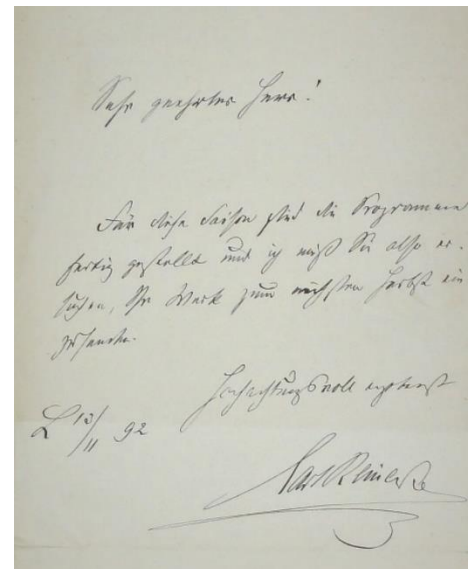 Sehr geehrter Herr!
Für diese Saison sind die Programme
fertig gestellt und ich muß Sie also er-
suchen, Ihr Werk zum nächsten Herbst ein
zusenden.
Hochachtungsvoll ergebenst
L 13/11 92
Carl Reinecke